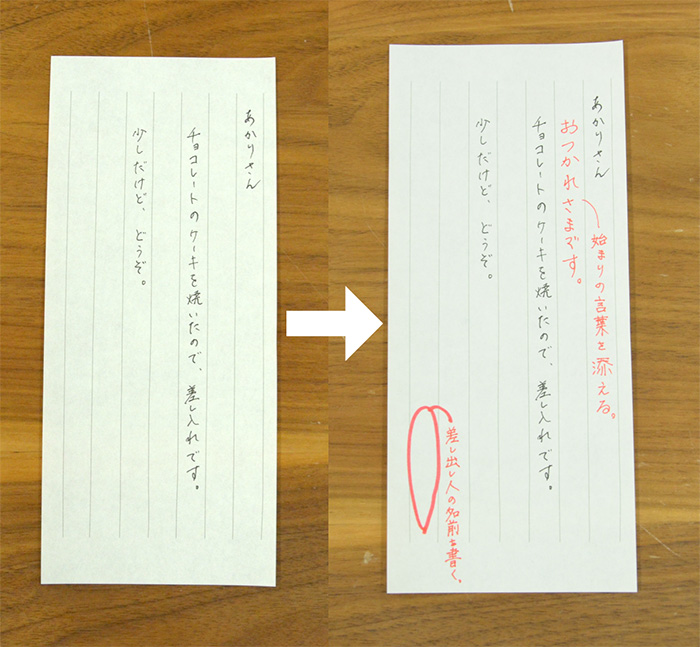 あかりさん
チョコレートのケーキを焼いたので、差し入れです。
少しだけど、どうぞ。
あかりさん
始まりの言葉を添える。
おつかれさまです。
チョコレートのケーキを焼いたので、差し入れです。
少しだけど、どうぞ。
差し出し人の名前を書く。